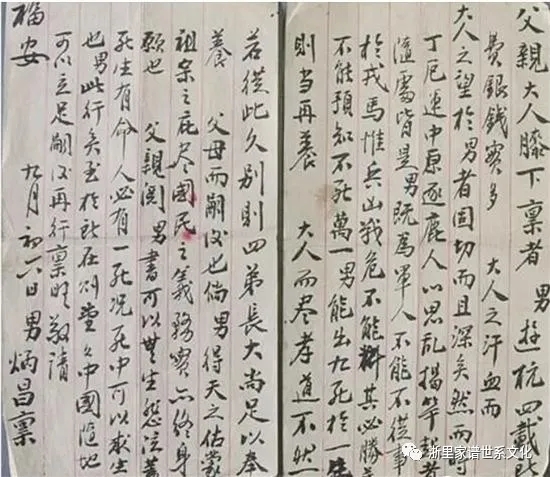 父親大人膝下稟者 男 遊杭四載
費銀錢實多 大人之汗血而
大人之望於男者固切而且深矣然而時
丁厄運中原逐鹿人心思亂揭竿起者
滙處皆是男既為軍人不能不從事
於戎馬惟兵凶戰危不能料其必勝並
不能預知不死萬一男能出九死於一生
則当再養 大人而尽孝道不然
若從此久別則四弟長大尚足以奉
養 父母而嗣後也倘男得天之佑蒙
祖宗之庇尽國民之義務實亦終身
願也 父親閱男書可以無生怨泣蓋
死生有命人必有一死況死中可以求生
也男此行矣至於 在何處 中國隨地
可以立足嗣後再行稟明敬請
福安
九月初六日男炳昌稟
浙里家谱世系文化